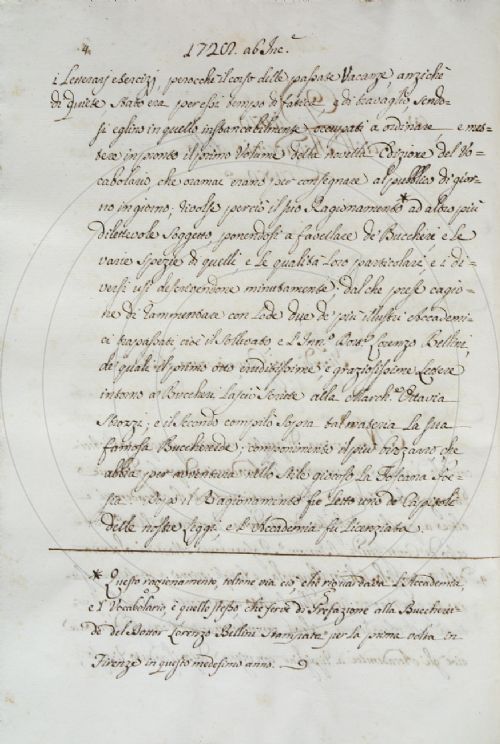 4. 1728. ab Inc.
i Letterarj esercizj, perocchè il corso delle passate Vacanze, anzichè
di quiete stato era per essi tempo di fatica, e di travaglio, sendo-
si eglino in quello instancabilmente occupati a ordinare e met-
tere in pronto il primo Volume della novella Edizione del Vo-
cabolario, che oramai erano per consegnare al pubblico di gior-
no in giorno; rivolse perciò il suo Ragionamento* ad altro più
dilettevole Soggetto, ponendosi a favellare de' Buccheri e le
varie Spezie di quelli, e le qualità loro particolari, e i di-
versi usi descrivendone minutamente: dal che prese cagio-
ne di rammentare con Lode due de' più illustri Accademi-
ci trapassati, cioè il Sollevato e l'Inn.º Dott.º Lorenzo Bellini,
de' quali il primo otto eruditissime e graziosissime Lettere
intorno a Buccheri lasciò scritte alla March.ª Ottavia
Strozzi; e il secondo compilò sopra tal materia la sua
famosa Bucchereide, componimento il più bizzarro che
abbia per avventura nello Stile giocoso la Toscana Poe-
sia. Dopo il Ragionamento fu Letto uno de' Capitoli
delle nostre Leggi, e l'Accademia fu Licenziata.
* Questo ragionamento, toltone via ciò, che riguardava l'Accademia,
e 'l Vocabolario, è quello stesso che serve di Prefazione alla Buccherei-
de del Dottor Lorenzo Bellini Stampata per la prima volta in
Firenze in questo medesimo anno.